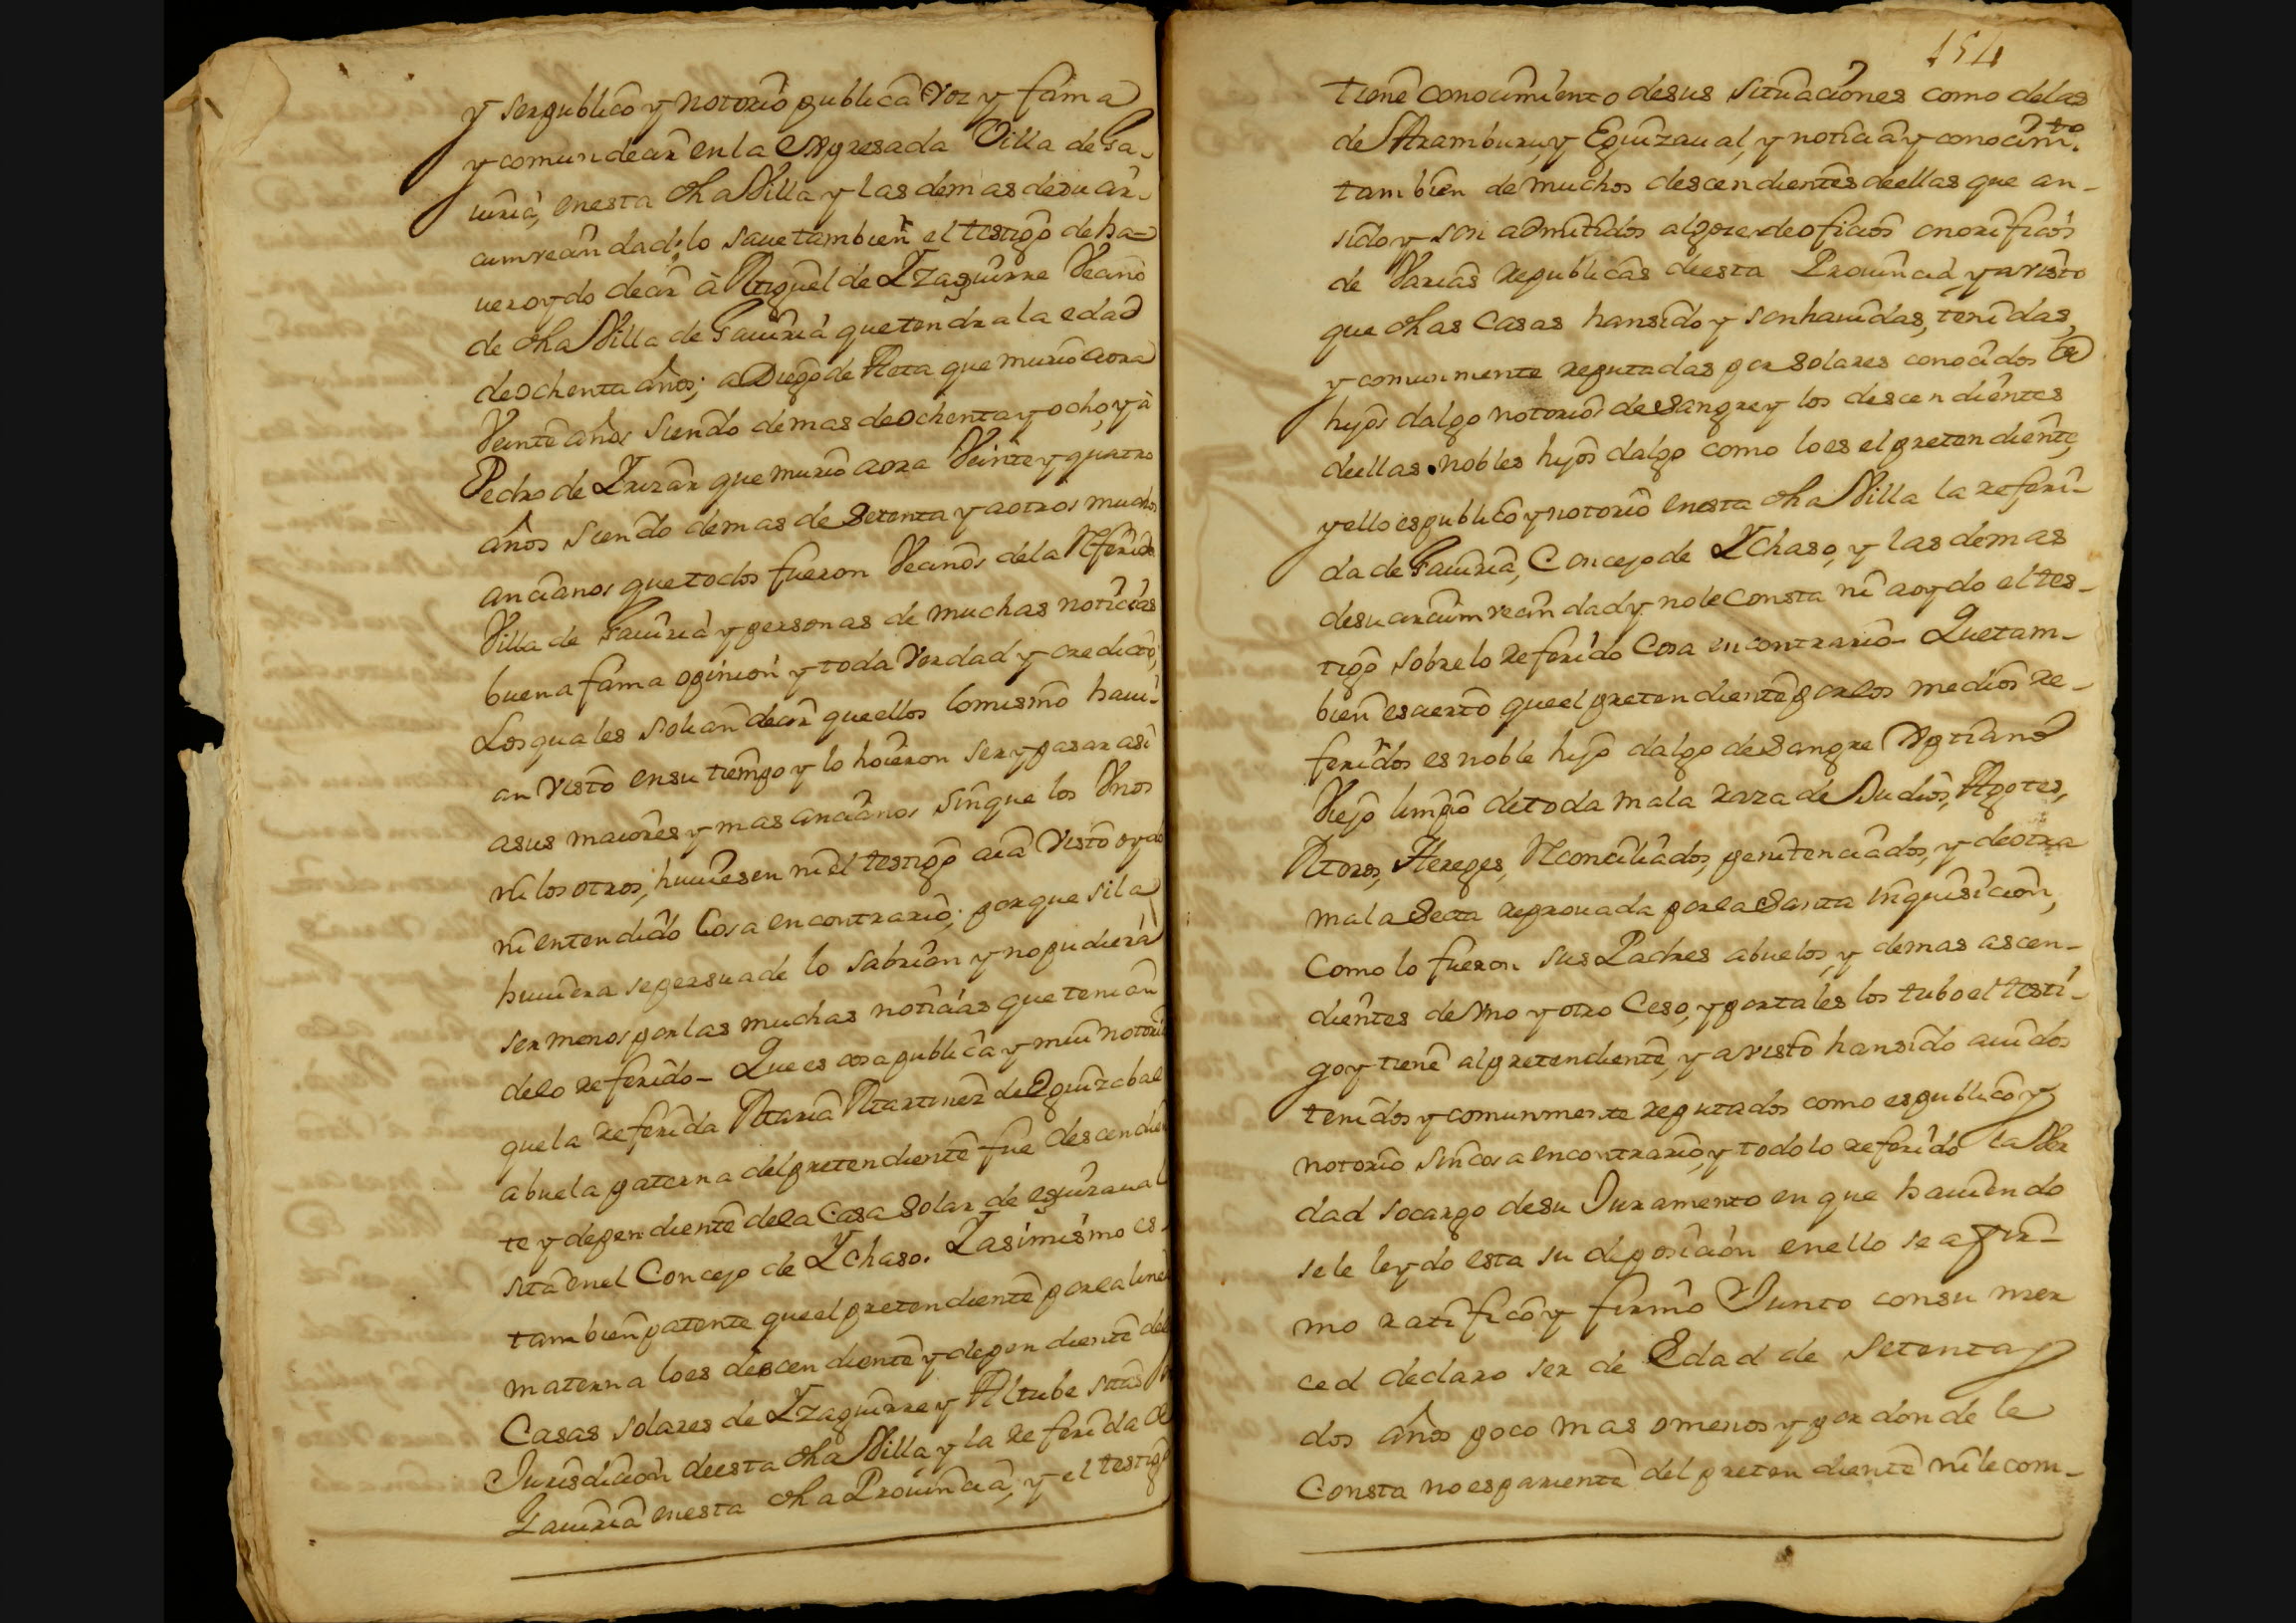 y ser publico y notorio publica voz y fama
y comun decir en la expresada Villa de Ga-
uiria, en esta dha Villa y las demas de su cir-
cumvecindad; lo saue tambien el testigo de ha-
uer oydo decir à Miguel de Yzaguirre Vecino
de dha Villa de Gauiria que tendra la edad
de ochenta años; a Diego de Aeta que murio aora
Veinte años siendo de mas de ochenta y ocho, y à
Pedro de Yrizar que murio aora Veinte y quatro
años siendo de mas de Setenta y a otros muchos
ancianos que todos fueron Vecinos de la Referida
Villa de Gauiria y personas de muchas noticias
buena fama opinion y toda Verdad y credicto,
Los quales solian decir que ellos lo mismo haui-
an visto en su tiempo y lo hoieron ser y pasar asi
a sus maiores y mas ancianos sin que los Vnos
ni los otros, huuiesen ni el testigo aia visto oydo
ni entendido Cosa en contrario; porque si la
huuiera se persuade lo sabrian y no pudiera
ser menos por las muchas noticias que tenian
de lo referido - Que es cosa publica y mui notoria
que la referida Maria Martinez de Eguizabal
abuela paterna del pretendiente fue descendien
te y dependiente de la Casa Solar de eguizaual
sita en el Concejo de Ychaso. Y asimismo es
tambien patente que el pretendiente por la linea
materna lo es descendiente y dependiente de
Casas Solares de Yzaguirre y Altube sitas
Jurisdicion de esta dha Villa y la referida de
Gauiria en esta dha Prouincia, y el testigo
154
tiene conocimiento de sus situaciones como de las
de Aramburu, y Eguizaual, y noticia y conocim.to
tambien de muchos descendientes de ellas que an-
sido y son admitidos al goze de oficios onorificos
de Varias republicas de esta Prouincia, y a visto
que dhas Casas han sido y son hauidas, tenidas,
y comunmente reputadas por Solares conocidos de
hijos dalgo notorios de Sangre y los descendientes
de ellas nobles hijos dalgo como lo es el pretendiente,
y ello es publico y notorio en esta dha Villa la referi-
da de Gauiria, Concejo de Ychaso, y las demas
de su circumvecindad y no le Consta ni a oydo el tes-
tigo sobre lo referido Cosa en contrario - Que tam-
bien es cierto que el pretendiente por los medios re-
feridos es noble hijo dalgo de Sangre Xptiano
Viejo limpio de toda mala raza de Judios, Agotes,
Moros, Hereges, Reconciliados, penitenciados, y de otra
mala Secta reprouada por la Santa Inquisicion,
Como lo fueron sus Padres abuelos, y demas ascen-
dientes de vno y otro Ceso, y por tales los tubo el testi-
go y tiene al pretendiente, y a visto han sido auidos
tenidos y comunmente reputados como es publico y
notorio sin cosa en contrario, y todo lo referido la Ver
dad so cargo de su Juramento en que hauiendo
sele leydo esta su deposicion en ello se afir-
mo ratifico y firmo Junto con su mer
ced declaro ser de Edad de Setenta y
dos años poco mas o menos y por donde le
Consta no es pariente del pretendiente ni le com-